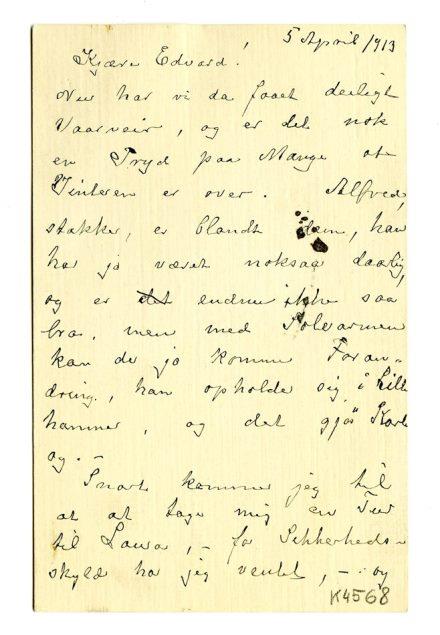 5 April 1913
Kjære Edvard!
Nu har vi da faaet deiligt
Vaarveir, og er det nok
en Fryd paa Mange at
Vinteren er over. Alfred,
stakker, er blandt dem, han
har jo været noksaa daarlig,
og er det endnu ikke saa
bra, men med Solvarmen
kan der jo komme Foran-
dring, han opholder sig i Lille
hammer, og det gjør Karl
og. –
Snart kommer jeg til
at at tage mig en Tur
til Laura, – for Sikkerheds-
skyld har jeg ventet, – og
K4568